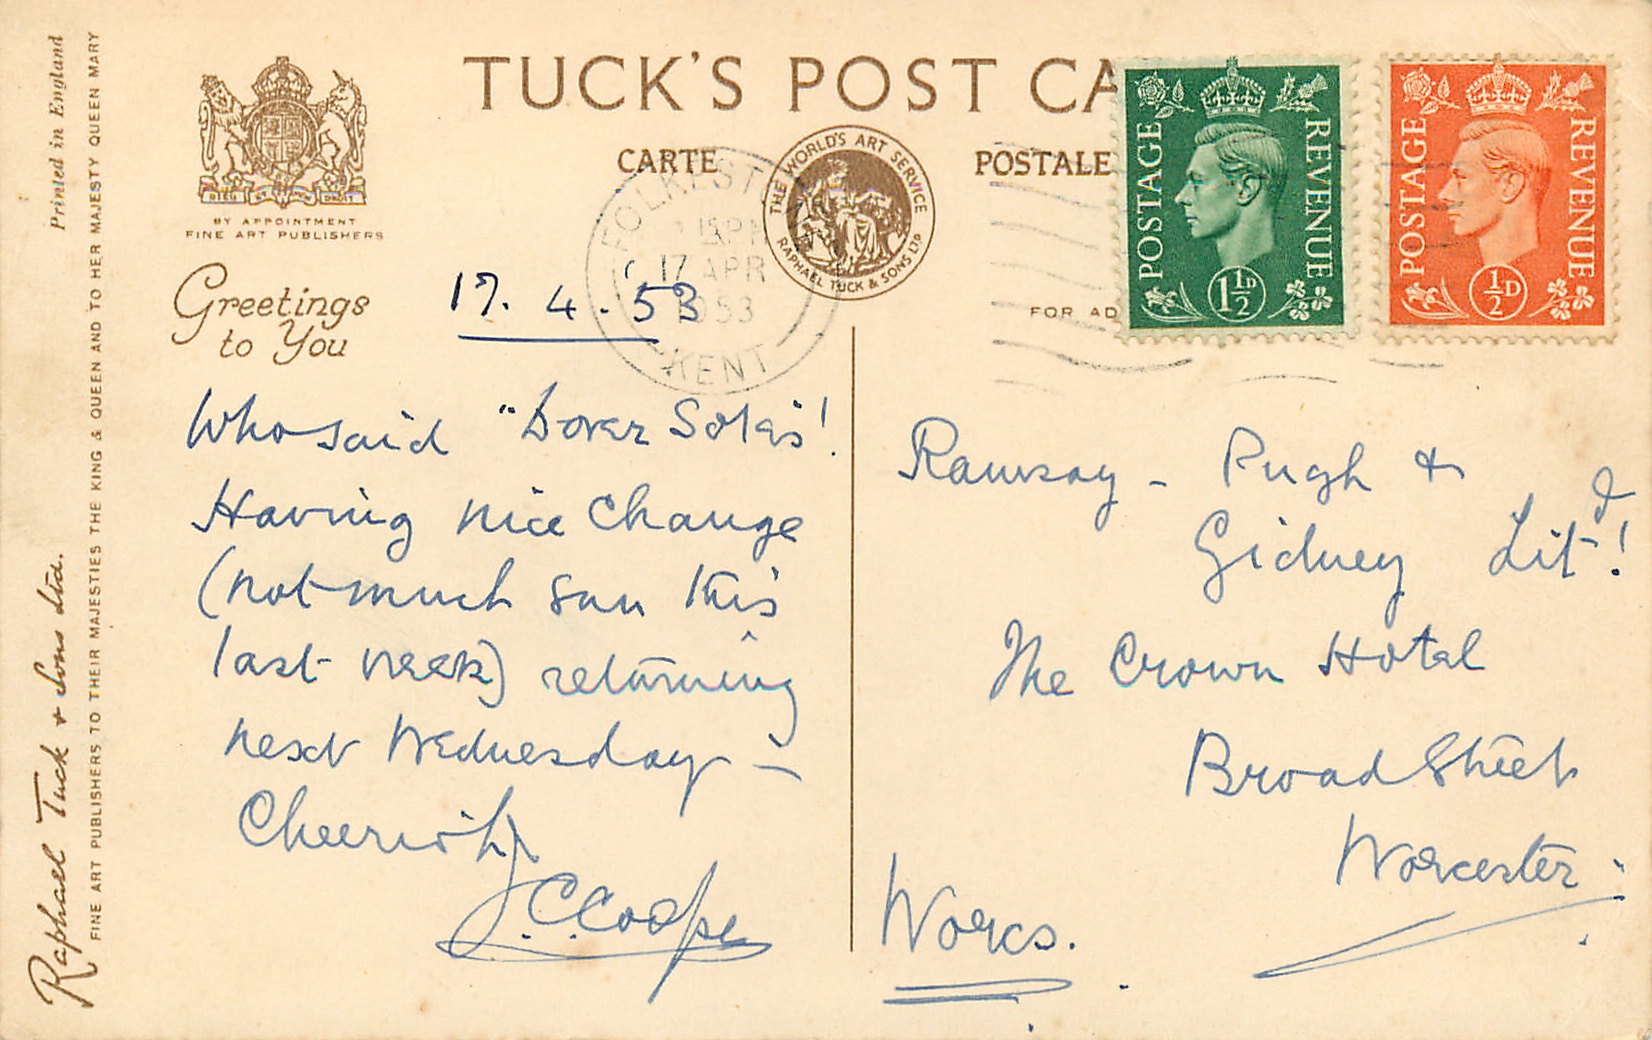 TUCK'S POST CA
CARTE
POSTALE
THE WORLD'S ART SERVICE
RAPHAEL TUCK & SONS LTD
DIEU ET MON DROIT
BY APPOINTMENT
FINE ART PUBLISHERS
Printed in England
FINE ART PUBLISHERS TO THEIR MAJESTIES THE KING & QUEEN AND TO HER MAJESTY QUEEN MARY
Raphael Tuck & Sons Ltd.
Greetings
to You
17. 4. 53
FOLKEST
PM
17 APR
1953
KENT
FOR AD
POSTAGE
REVENUE
1½D
POSTAGE
REVENUE
½D
Who said "Dover Soles'!
Having nice change
(not much sun this
last week) returning
next Wednesday –
Cheerioh
J.C.Coope
Ramsay – Pugh &
Gidney Litd!
The Crown Hotel
Broad Street
Worcester.
Worcs.